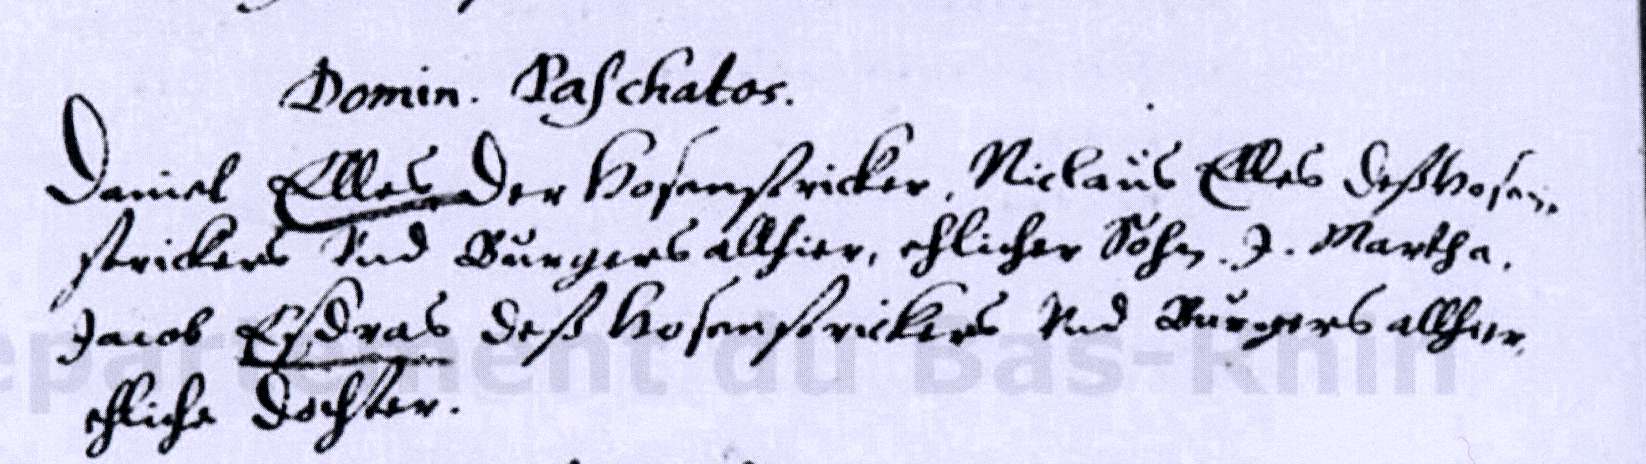 Domin. Paschatos.
Daniel Elles Der Hosenstricker, Niclaüs Elles deß Hosen-
strickers Vnd Burgers allhier, ehlicher Sohn. J. Martha,
Jacob Eßdras deß Hosenstrickers Vnd Burgers allhier,
ehliche Dochter.
Département du Bas-Rhin